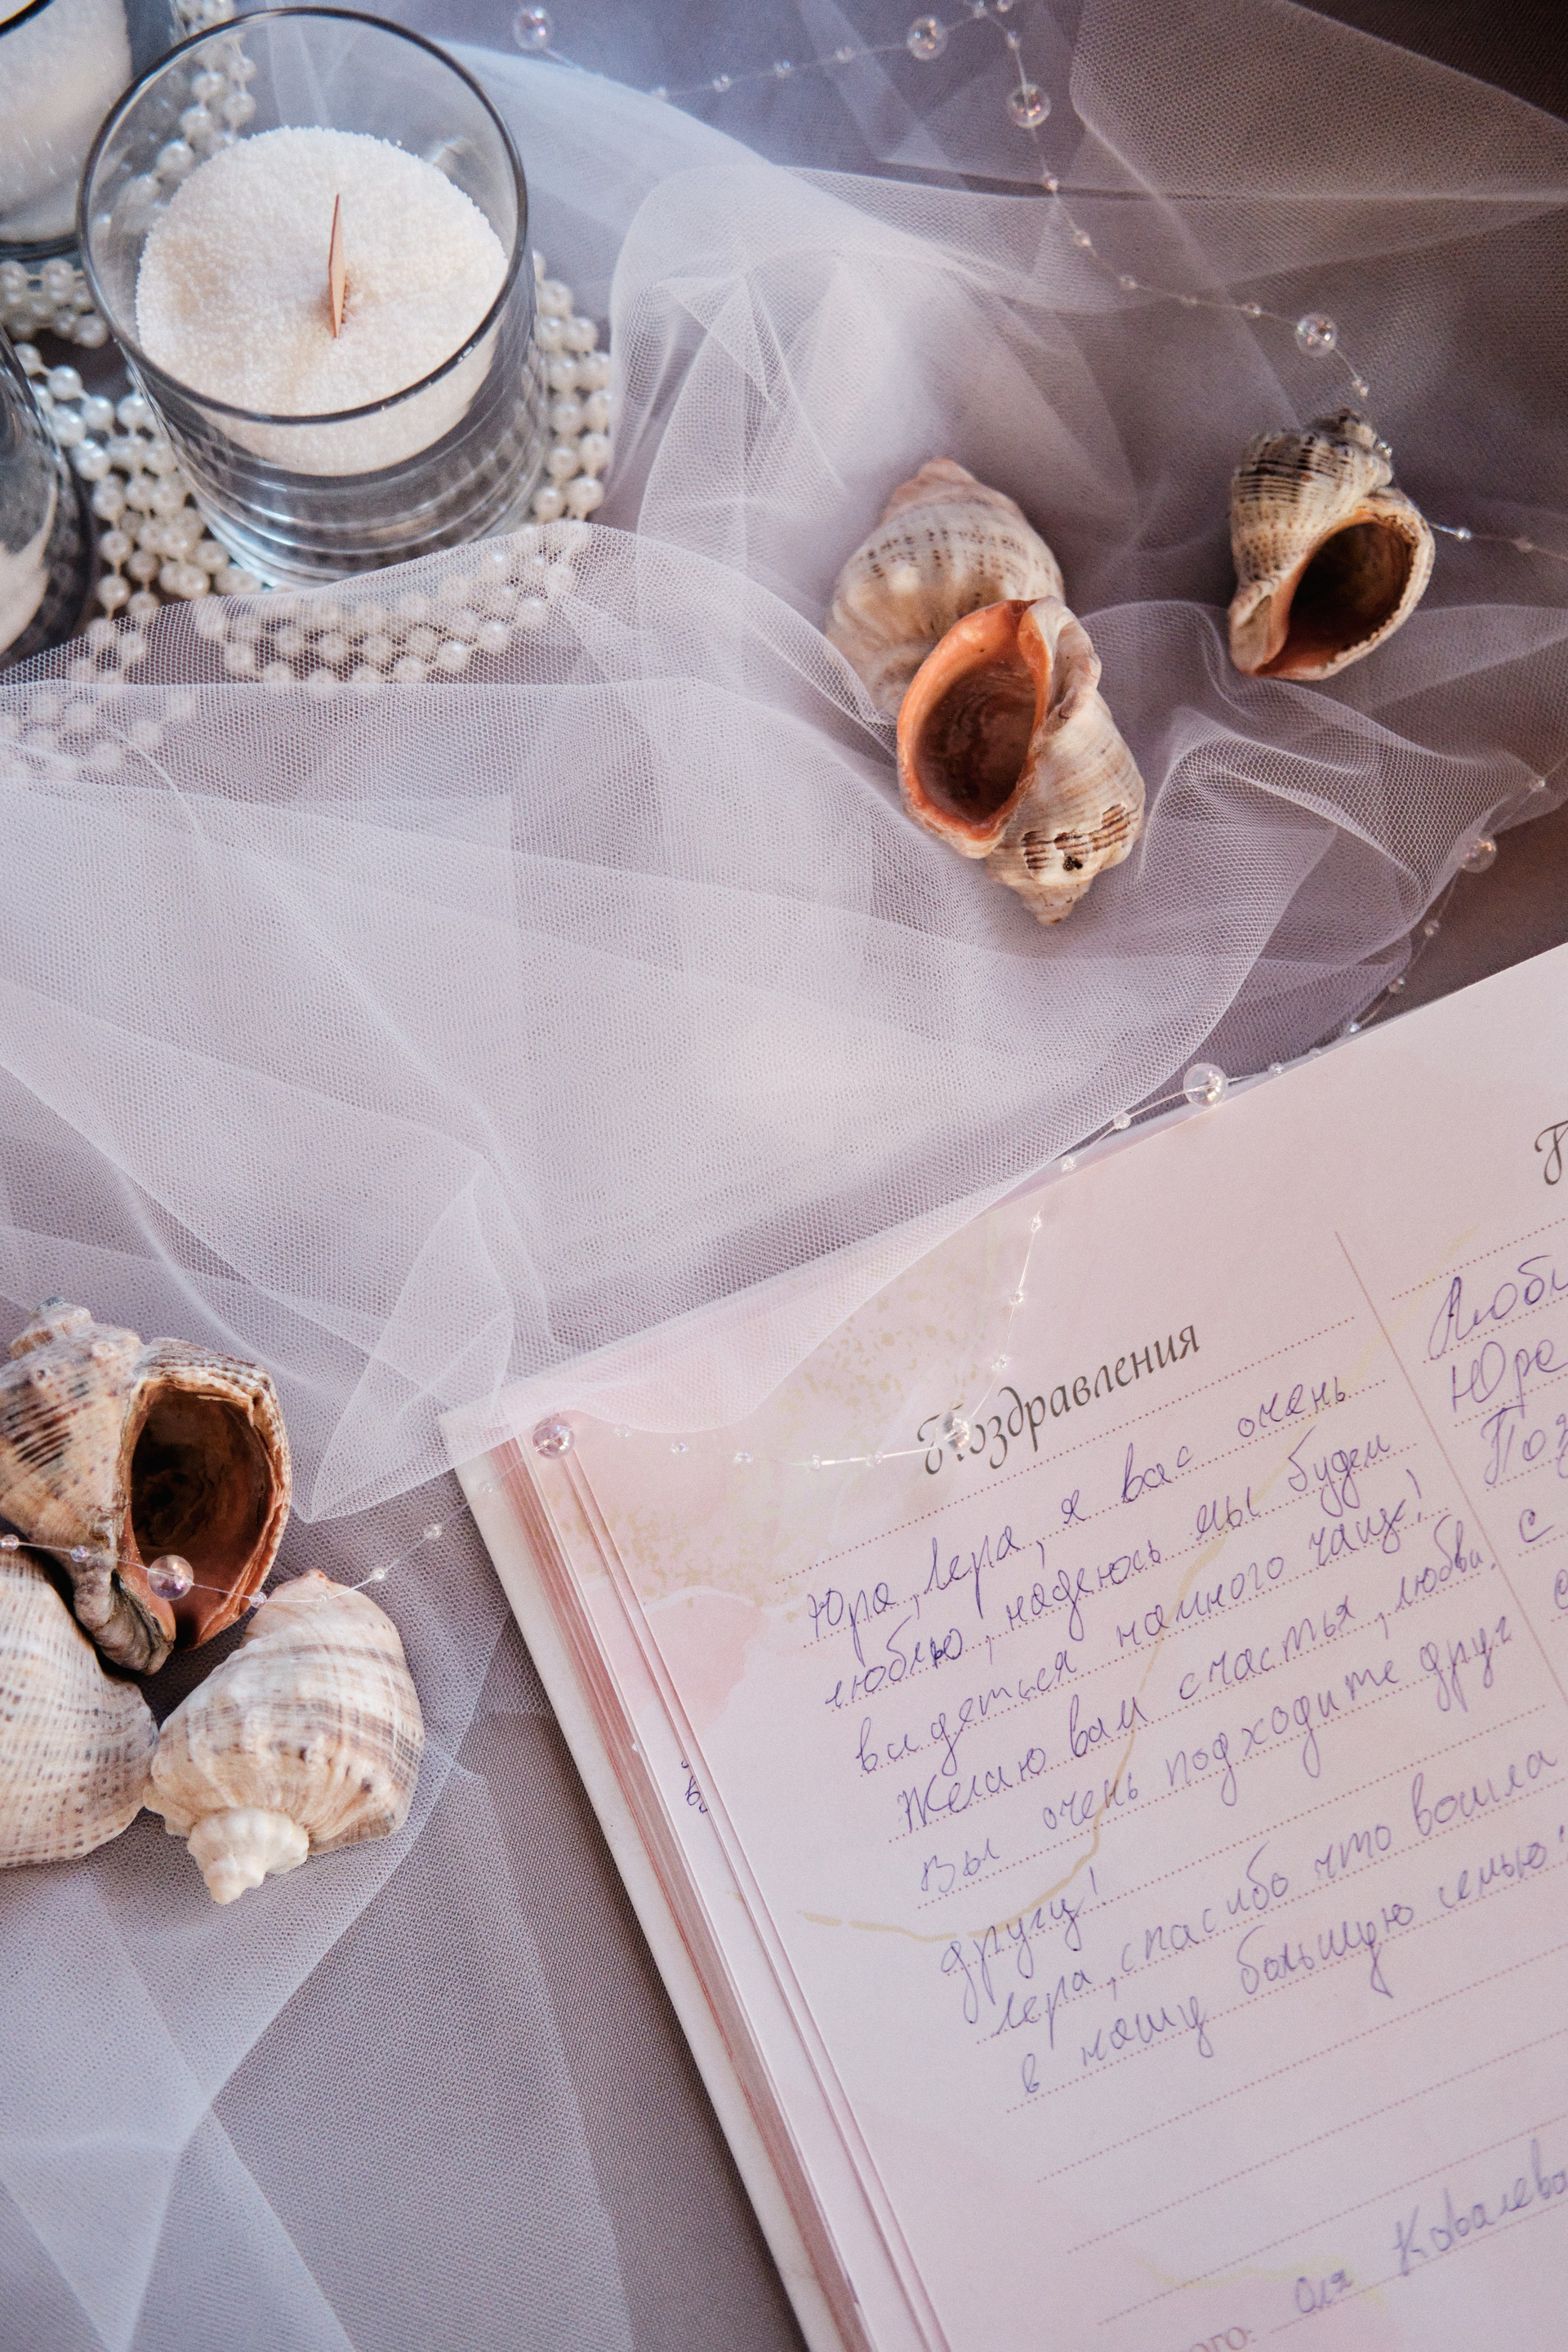 Поздравления
Юра, Лера, я вас очень
люблю, надеюсь мы будем
видеться намного чаще!
Желаю вам счастья, любви.
Вы очень подходите друг
другу!
Лера, спасибо что вошла
в нашу большую семью!
Оля Ковалева
П
Люби
Юра
Поз
с